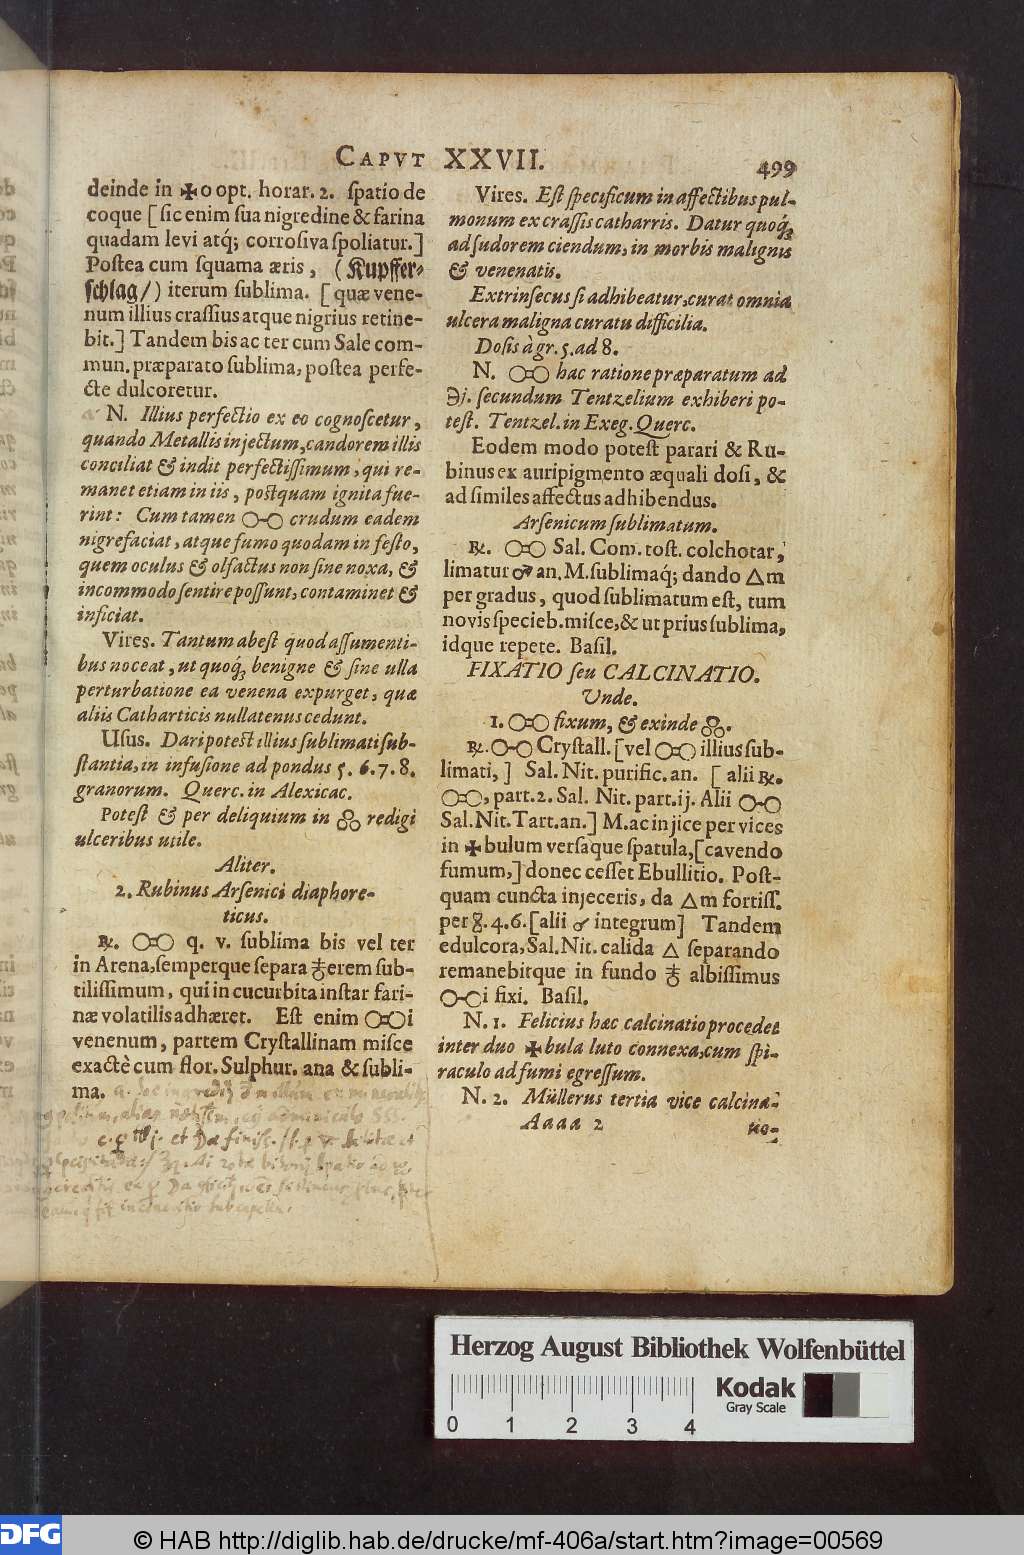 CAPVT XXVII. 499
deinde in ✠o opt. horar. 2. ſpatio de
coque [ ſic enim ſua nigredine & farina
quadam levi atq́; corroſiva ſpoliatur. ]
Poſtea cum ſquama æris, (Kupffer-
ſchlag/) iterum ſublima. [ quæ vene-
num illius craſſius atque nigrius retine-
bit. ] Tandem bis ac ter cum Sale com-
mun. præparato ſublima, poſtea perfe-
cte dulcoretur.
N. Illius perfectio ex eo cognoſcetur,
quando Metallis injectum, candorem illis
conciliat & indit perfectiſſimum, qui re-
manet etiam in iis, postquam ignita fue-
rint: Cum tamen o-o crudum eadem
nigrefaciat, atque fumo quodam infeſto,
quem oculus & olfactus non ſine noxa, &
incommodo ſentire poſſunt, contaminet &
inficiat.
Vires. Tantum abeſt quod aſſumenti-
bus noceat, ut quoq́; benigne & ſine ulla
perturbatione ea venena expurget, quæ
aliis Catharticis nullatenus cedunt.
Uſus. Dari potest illius ſublimati ſub-
ſtantia, in infuſione ad pondus 5. 6. 7. 8.
granorum. Querc. in Alexicac.
Poteſt & per deliquium in redigi
ulceribus utile.
Aliter.
2. Rubinus Arſenici diaphore-
ticus.
℞. o=o q. v. ſublima bis vel ter
in Arena, ſemperque ſepara 🜍erem ſub-
tiliſſimum, qui in cucurbita inſtar fari-
næ volatilis adhæret. Eſt enim o=oi
venenum, partem Cryſtallinam miſce
exactè cum flor. Sulphur. ana & ſubli-
ma.
Vires. Eſt ſpecificum in affectibus pul-
monum ex craſſis catharris. Datur quoq́;
ad ſudorem ciendum, in morbis malignis
& venenatis.
Extrinſecus ſi adhibeatur, curat omnia
ulcera maligna curatu difficilia.
Doſis à gr. 5. ad 8.
N. o=o hac ratione præparatum ad
℈j. ſecundum Tentzelium exhiberi po-
teſt. Tentzel. in Exeg. Querc.
Eodem modo poteſt parari & Ru-
binus ex auripigmento æquali doſi, &
ad ſimiles affectus adhibendus.
Arſenicum ſublimatum.
℞. o=o Sal. Com. toſt. colchotar,
limatur ♂ an. M. ſublimaq́; dando △m
per gradus, quod ſublimatum eſt, cum
novis ſpecieb. miſce, & ut prius ſublima,
idque repete. Baſil.
FIXATIO ſeu CALCINATIO.
Unde.
1. o=o fixum, & exinde
℞. o-o Cryſtall. [ vel o=o illius ſub-
limati, ] Sal. Nit. purific. an. [ alii ℞.
o=o, part. 2. Sal. Nit. part. ij. Alii o-o
Sal. Nit. Tart. an. ] M. ac injice per vices
in ✠bulum verſaque ſpatula, [ cavendo
fumum, ] donec ceſſet Ebullitio. Poſt-
quam cuncta injeceris, da △m fortiſſ.
per 4. 6. [ alii integrum ] Tandem
edulcora, Sal. Nit. calida △ ſeparando
remanebitque in fundo albiſſimus
o-oi fixi. Baſil.
N. 1. Felicius hæc calcinatio procedet
inter duo ✠bula luto connexa, cum ſpi-
raculo ad fumi egreſſum.
N. 2. Müllerus tertia vice calcina-
Aaaa 2 tio-
Herzog August Bibliothek Wolfenbüttel
Kodak
Gray Scale
0 1 2 3 4
DFG © HAB http://diglib.hab.de/drucke/mf-406a/start.htm?image=00569